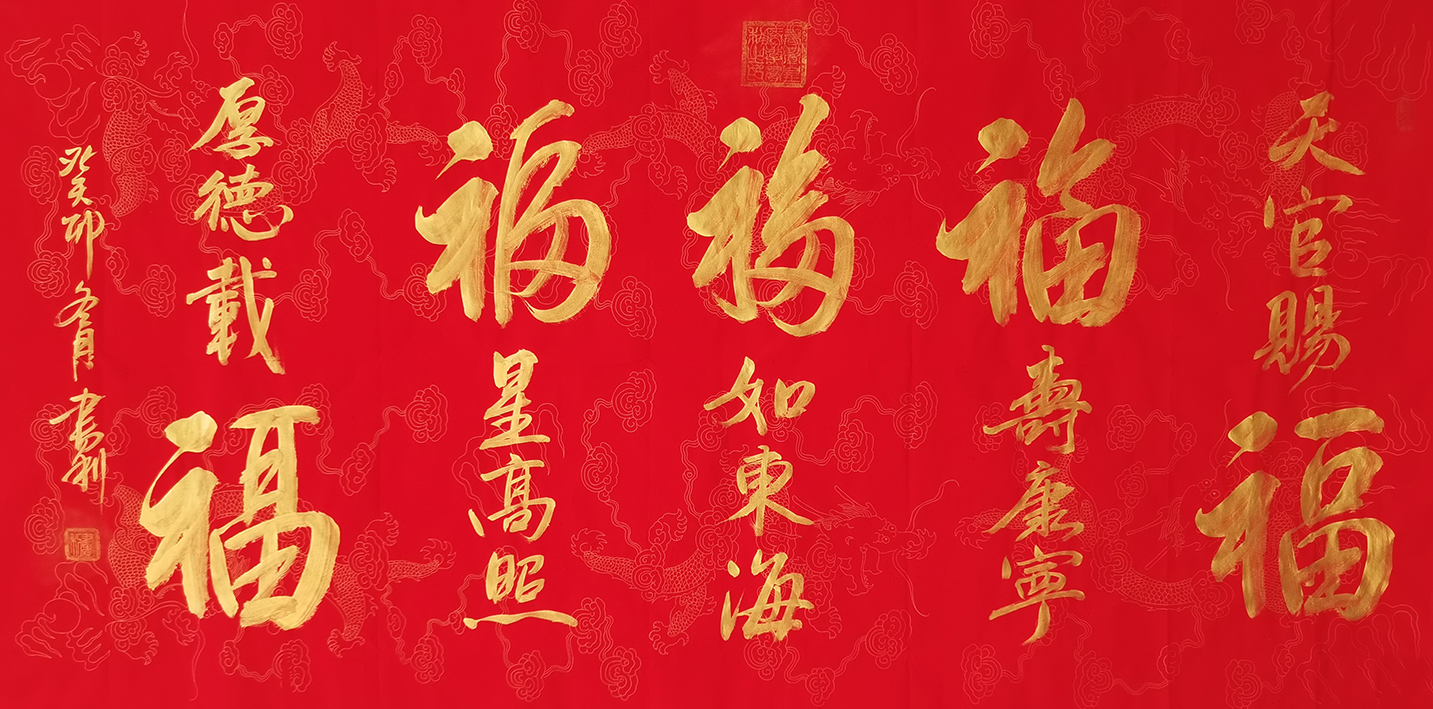 天官賜福
福壽康寧
福如東海
福星高照
厚德載福
癸卯冬月書利